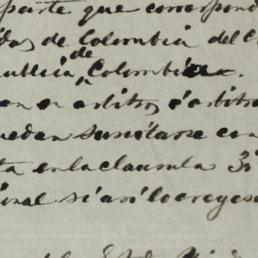 parte que correspond
das de Colombia del C
ublica de Colombia.
en arbitro, ó arbitro
uedan suscitarse con
ta en la clausula 3
inal si así lo creyese